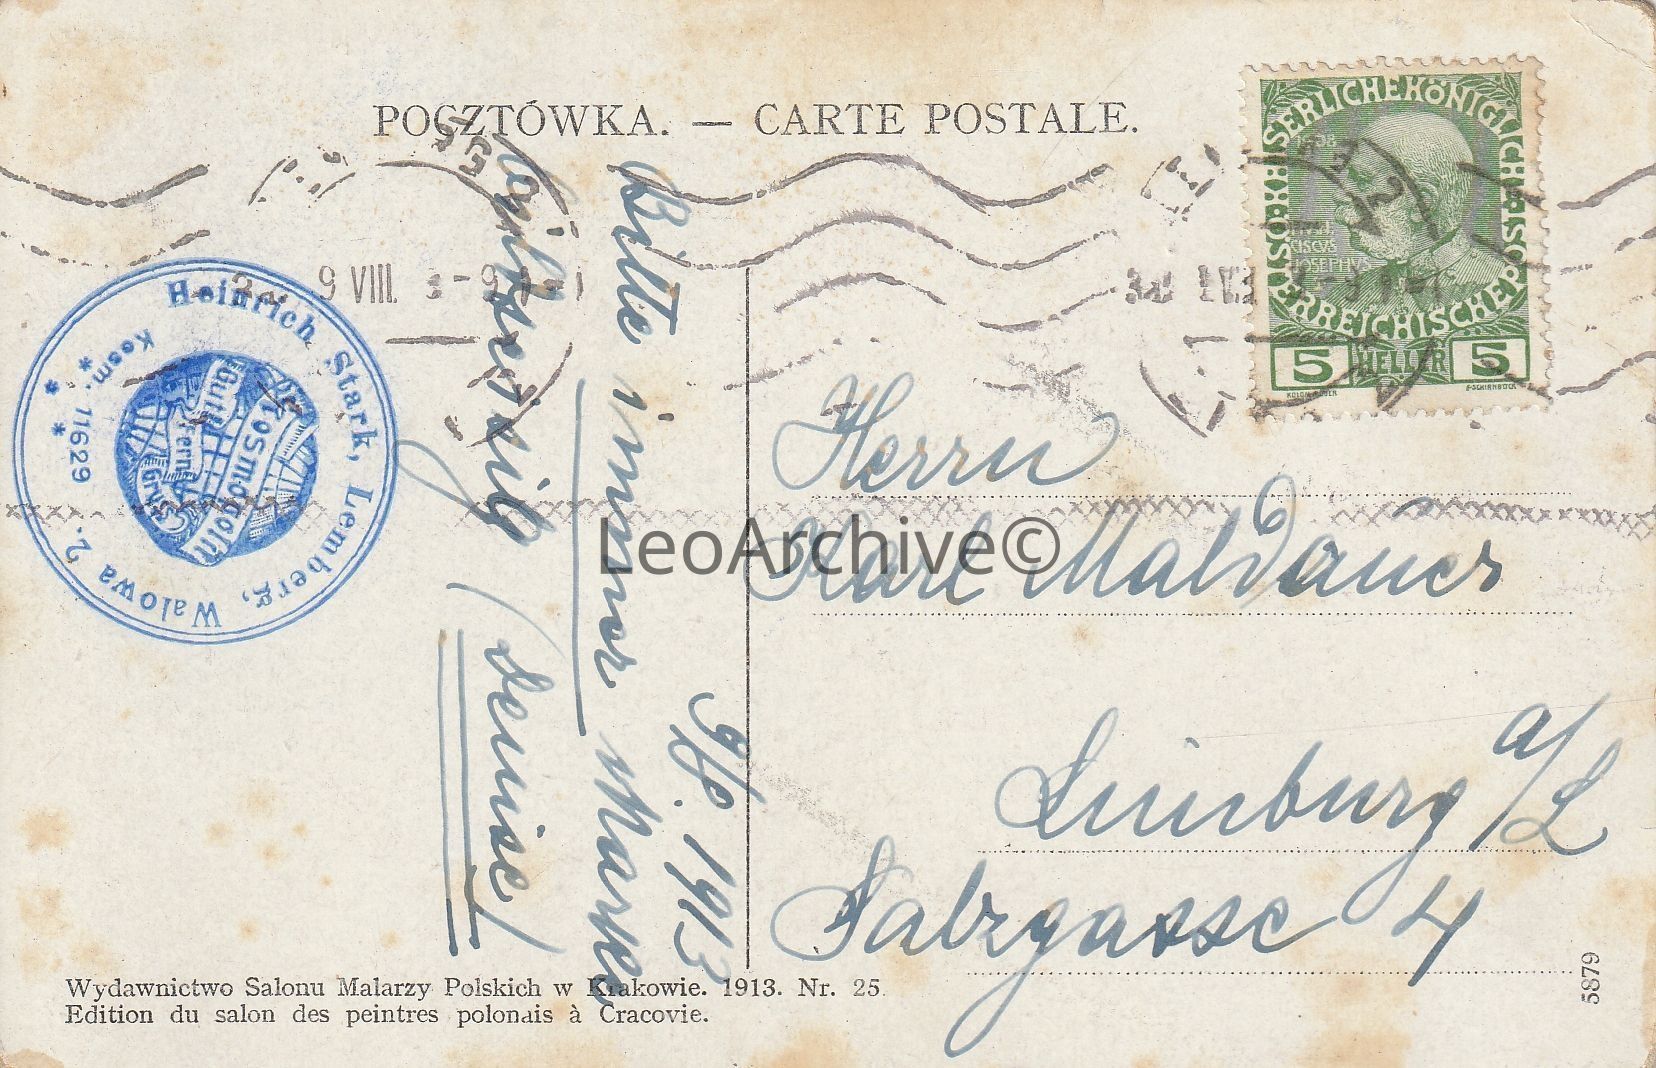 POCZTÓWKA. — CARTE POSTALE.
KAISERLICHE KÖNIGLICHE ÖSTERREICHISCHE POST
1908
CISCUS
JOSEPHVS
5 HELLER 5
9 VIII.
Heinrich Stark, Lemberg, Walowa 2.
* Kosm. 11629 *
*
Kosmopolit
Bitte immer Marke
9/8. 1913
Herrn
Karl Maldaner
Limburg a/L
Salzgasse 4
LeoArchive©
Wydawnictwo Salonu Malarzy Polskich w Krakowie. 1913. Nr. 25.
Edition du salon des peintres polonais à Cracovie.
5879